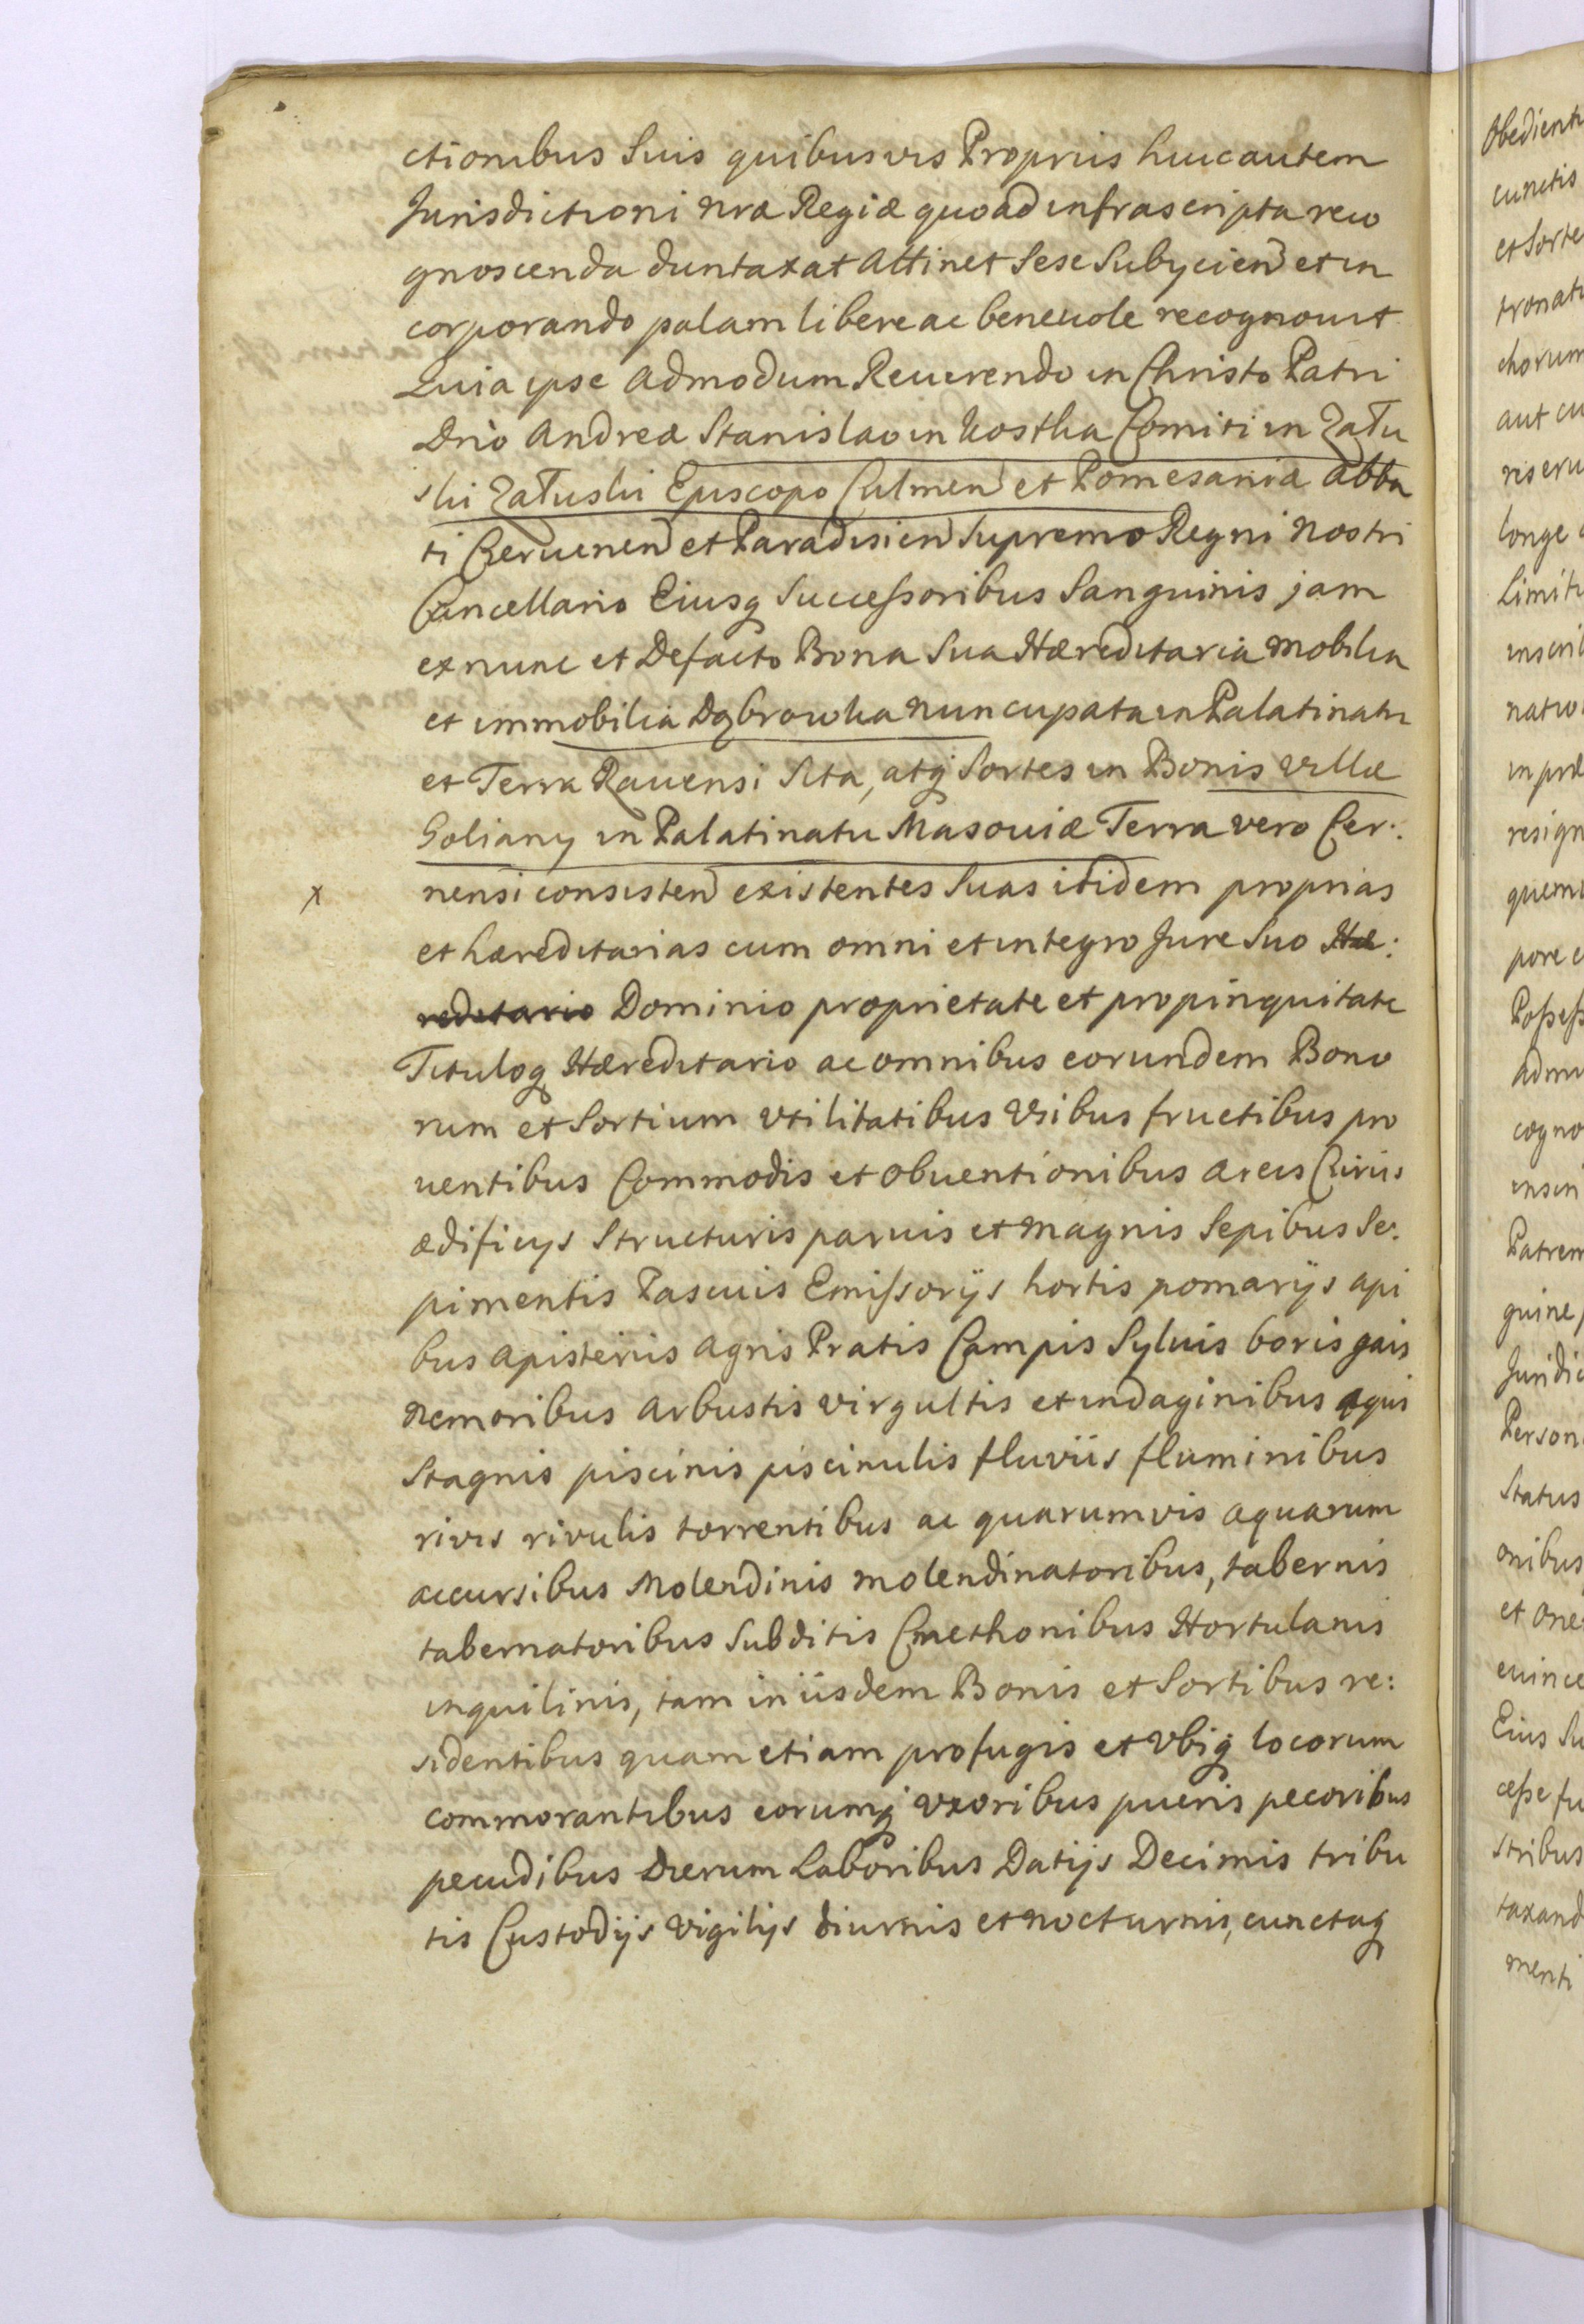 ctionibus Suis quibusvis Propriis huic autem
Jurisdictioni nræ Regiæ quoad infrascripta reco
gnoscenda duntaxat Attinet Sese Subycien et in
corporando palam libere ac beneuole recognouit
Quia ipse Admodum Reuerendo in Christo Patri
Dno Andreæ Stanislao in Kostka Comiti in Zału
ski Załuski Episcopo Culmen et Pomesaniæ Abba
ti Ceruenen et Paradisien Supremo Regni Nostri
Cancellario Eiusq Successoribus Sanguinis jam
ex nunc et Defacto Bona Sua Hæreditaria Mobilia
et immobilia Dąbrowka nuncupata in Palatinatu
et Terra Rauensi Sita, atq Sortes in Bonis Villæ
Goliany in Palatinatu Masouiæ Terra vero Cer:
x nensi consisten existentes Suas itidem proprias
et hæreditarias cum omni et integro Jure Suo Hæ:
reditario Dominio proprietate et propinquitate
Tituloq Hæreditario ac omnibus eorundem Bono
rum et Sortium Vtilitatibus Vsibus fructibus pro
uentibus Commodis et obuentionibus Areis Curiis
ædificijs Structuris paruis et magnis Sepibus Se:
pimentis Pascuis Emissorijs hortis pomarijs api
bus Apisteriis Agris Pratis Campis Syluis boris gais
Nemoribus Arbustis virgultis et indaginibus Aquis
Stagnis piscinis piscinulis fluviis fluminibus
rivis rivulis torrentibus ac quarumvis Aquarum
accursibus Molendinis molendinatoribus, tabernis
tabernatoribus Subditis Cmethonibus Hortulanis
inquilinis, tam in iisdem Bonis et Sortibus re:
sidentibus quam etiam profugis et Vbiq locorum
commorantibus eorumq Vxoribus pueris pecoribus
pecudibus Dierum Laboribus Datijs Decimis tribu
tis Custodijs Vigilijs diurnis et nocturnis, cunctaq
Obedienti
cunctis
et Sorte
tronatu
chorum
aut cu
ris eru
longe
Limit
inscri
natu
in præ
resign
quem
pore
Possess
Adm
cogno
insin
Patrem
guine
Juridi
Person
Status
onibus
et one
euince
Eius Su
cesse fu
stribus
taxand
menti